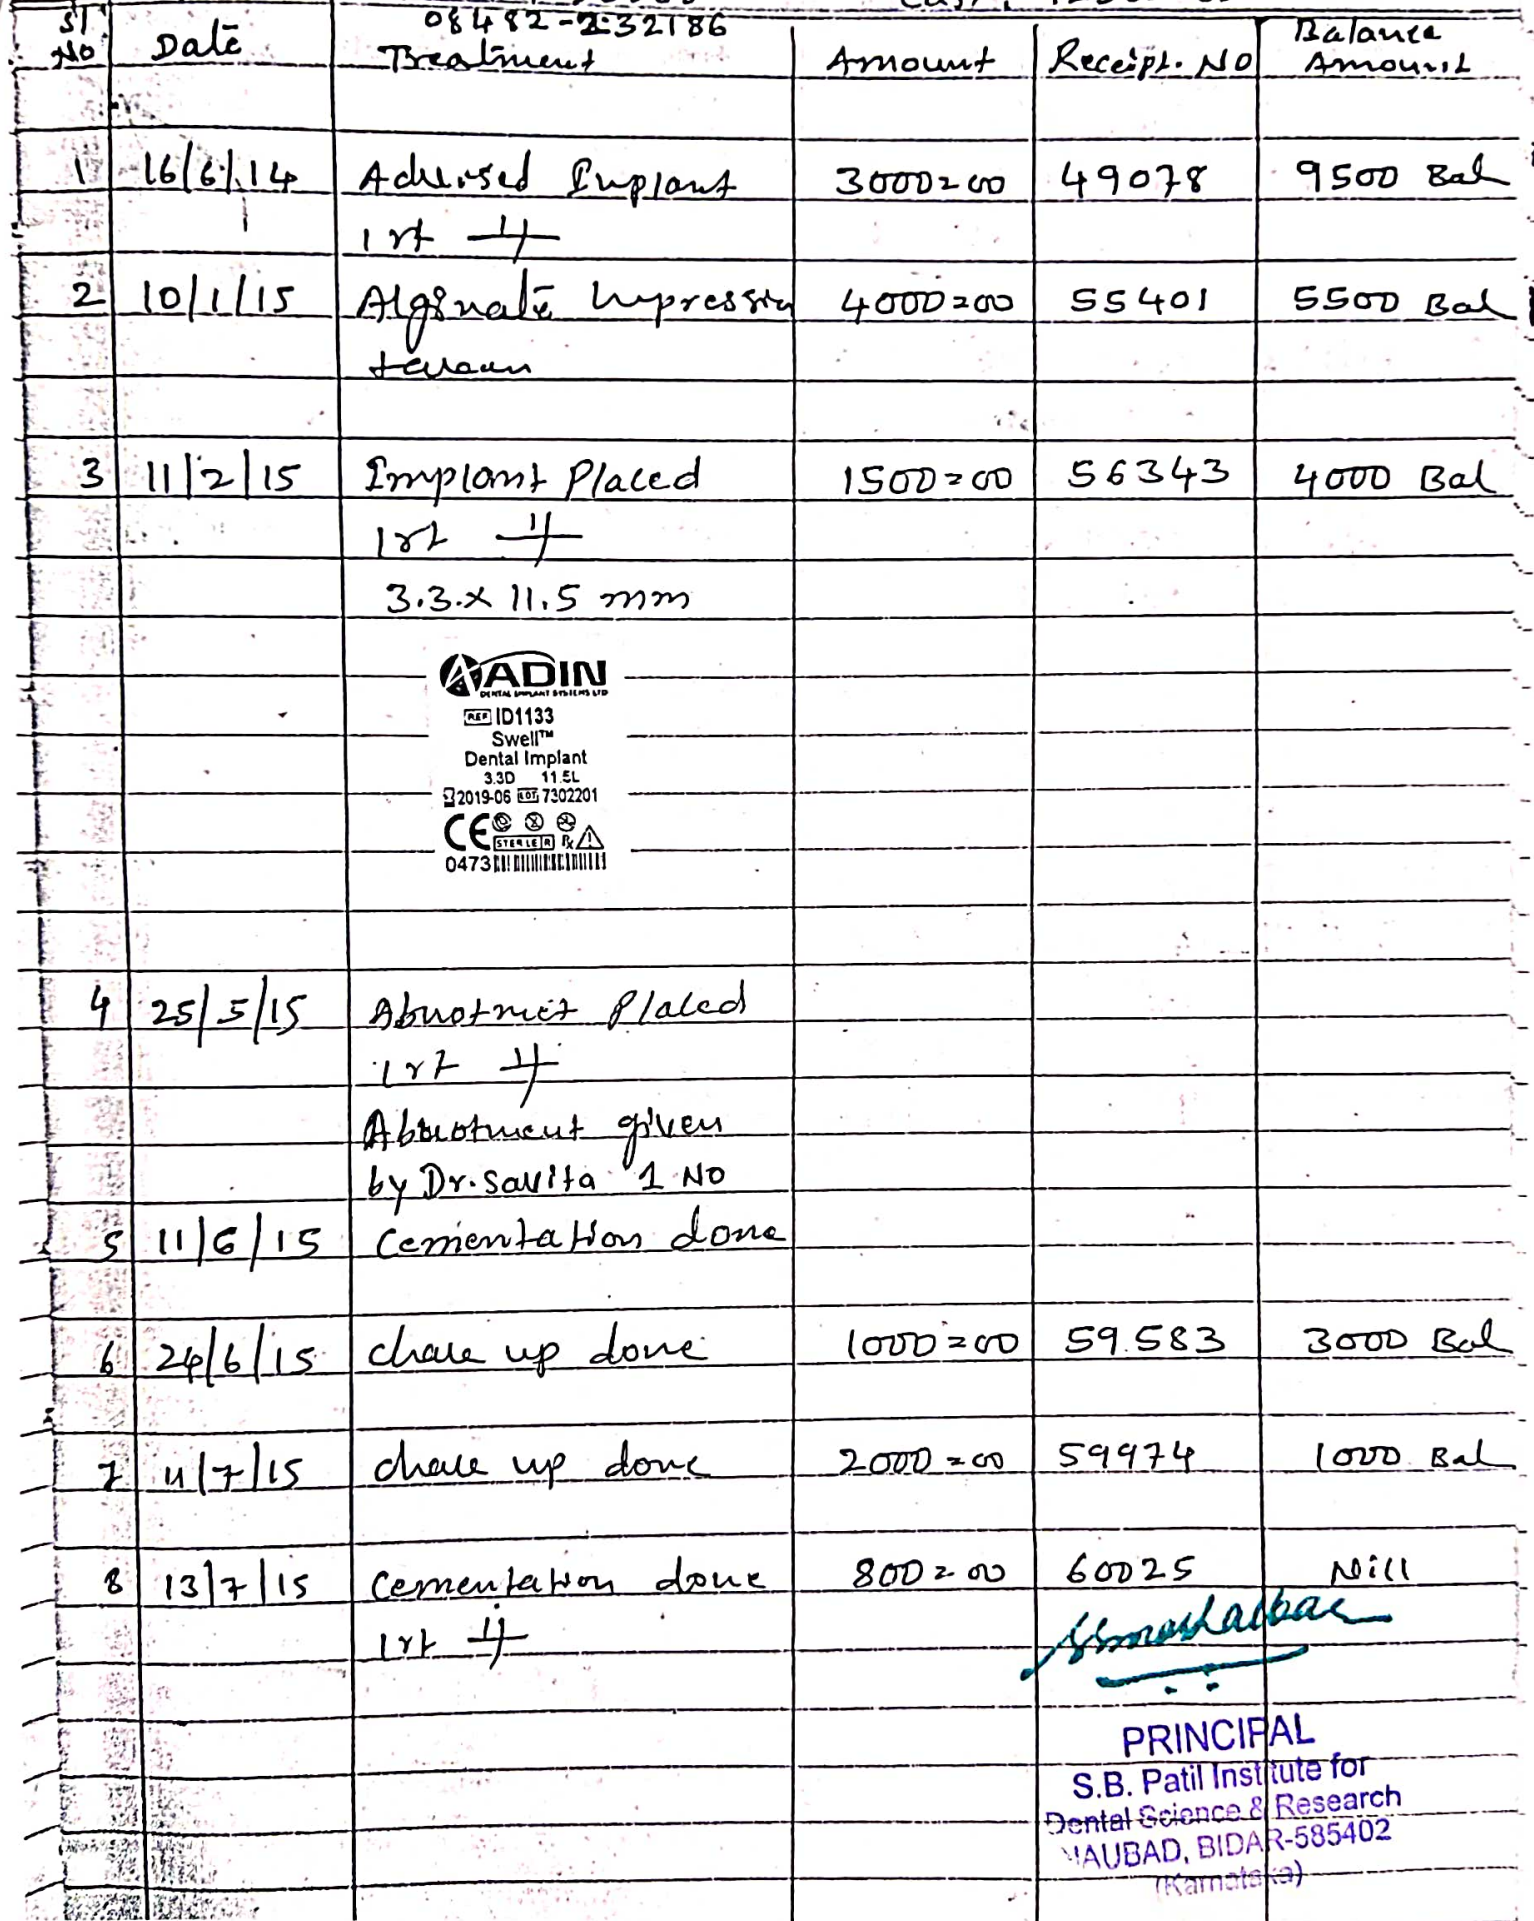 Sl No Date 08482-232186 Treatment Amount Receipt. NO Balance Amount
1 16/6/14 Advised Implant 3000=00 49078 9500 Bal
irt
2 10/1/15 Alginate Impression 4000=00 55401 5500 Bal
3 11/2/15 Implant Placed 1500=00 56343 4000 Bal
irt
3.3.x 11.5 mm
ADIN
DENTAL IMPLANT SYSTEMS LTD
REF ID1133
Swell™
Dental Implant
3.3D 11.5L
2019-06 LOT 7302201
CE
STERILE R Rx
0473
4 25/5/15 Abuotmet Placed
irt
Abuotment given
by Dr. Savita 1 No
5 11/6/15 Cementation done
6 24/6/15 up done 1000=00 59583 3000 Bal
7 11/7/15 up done 2000=00 59974 1000 Bal
8 13/7/15 Cementation done 800=00 60025 Nill
irt
PRINCIPAL
S.B. Patil Institute for
Dental Science & Research
NAUBAD, BIDAR-585402
(Karnataka)